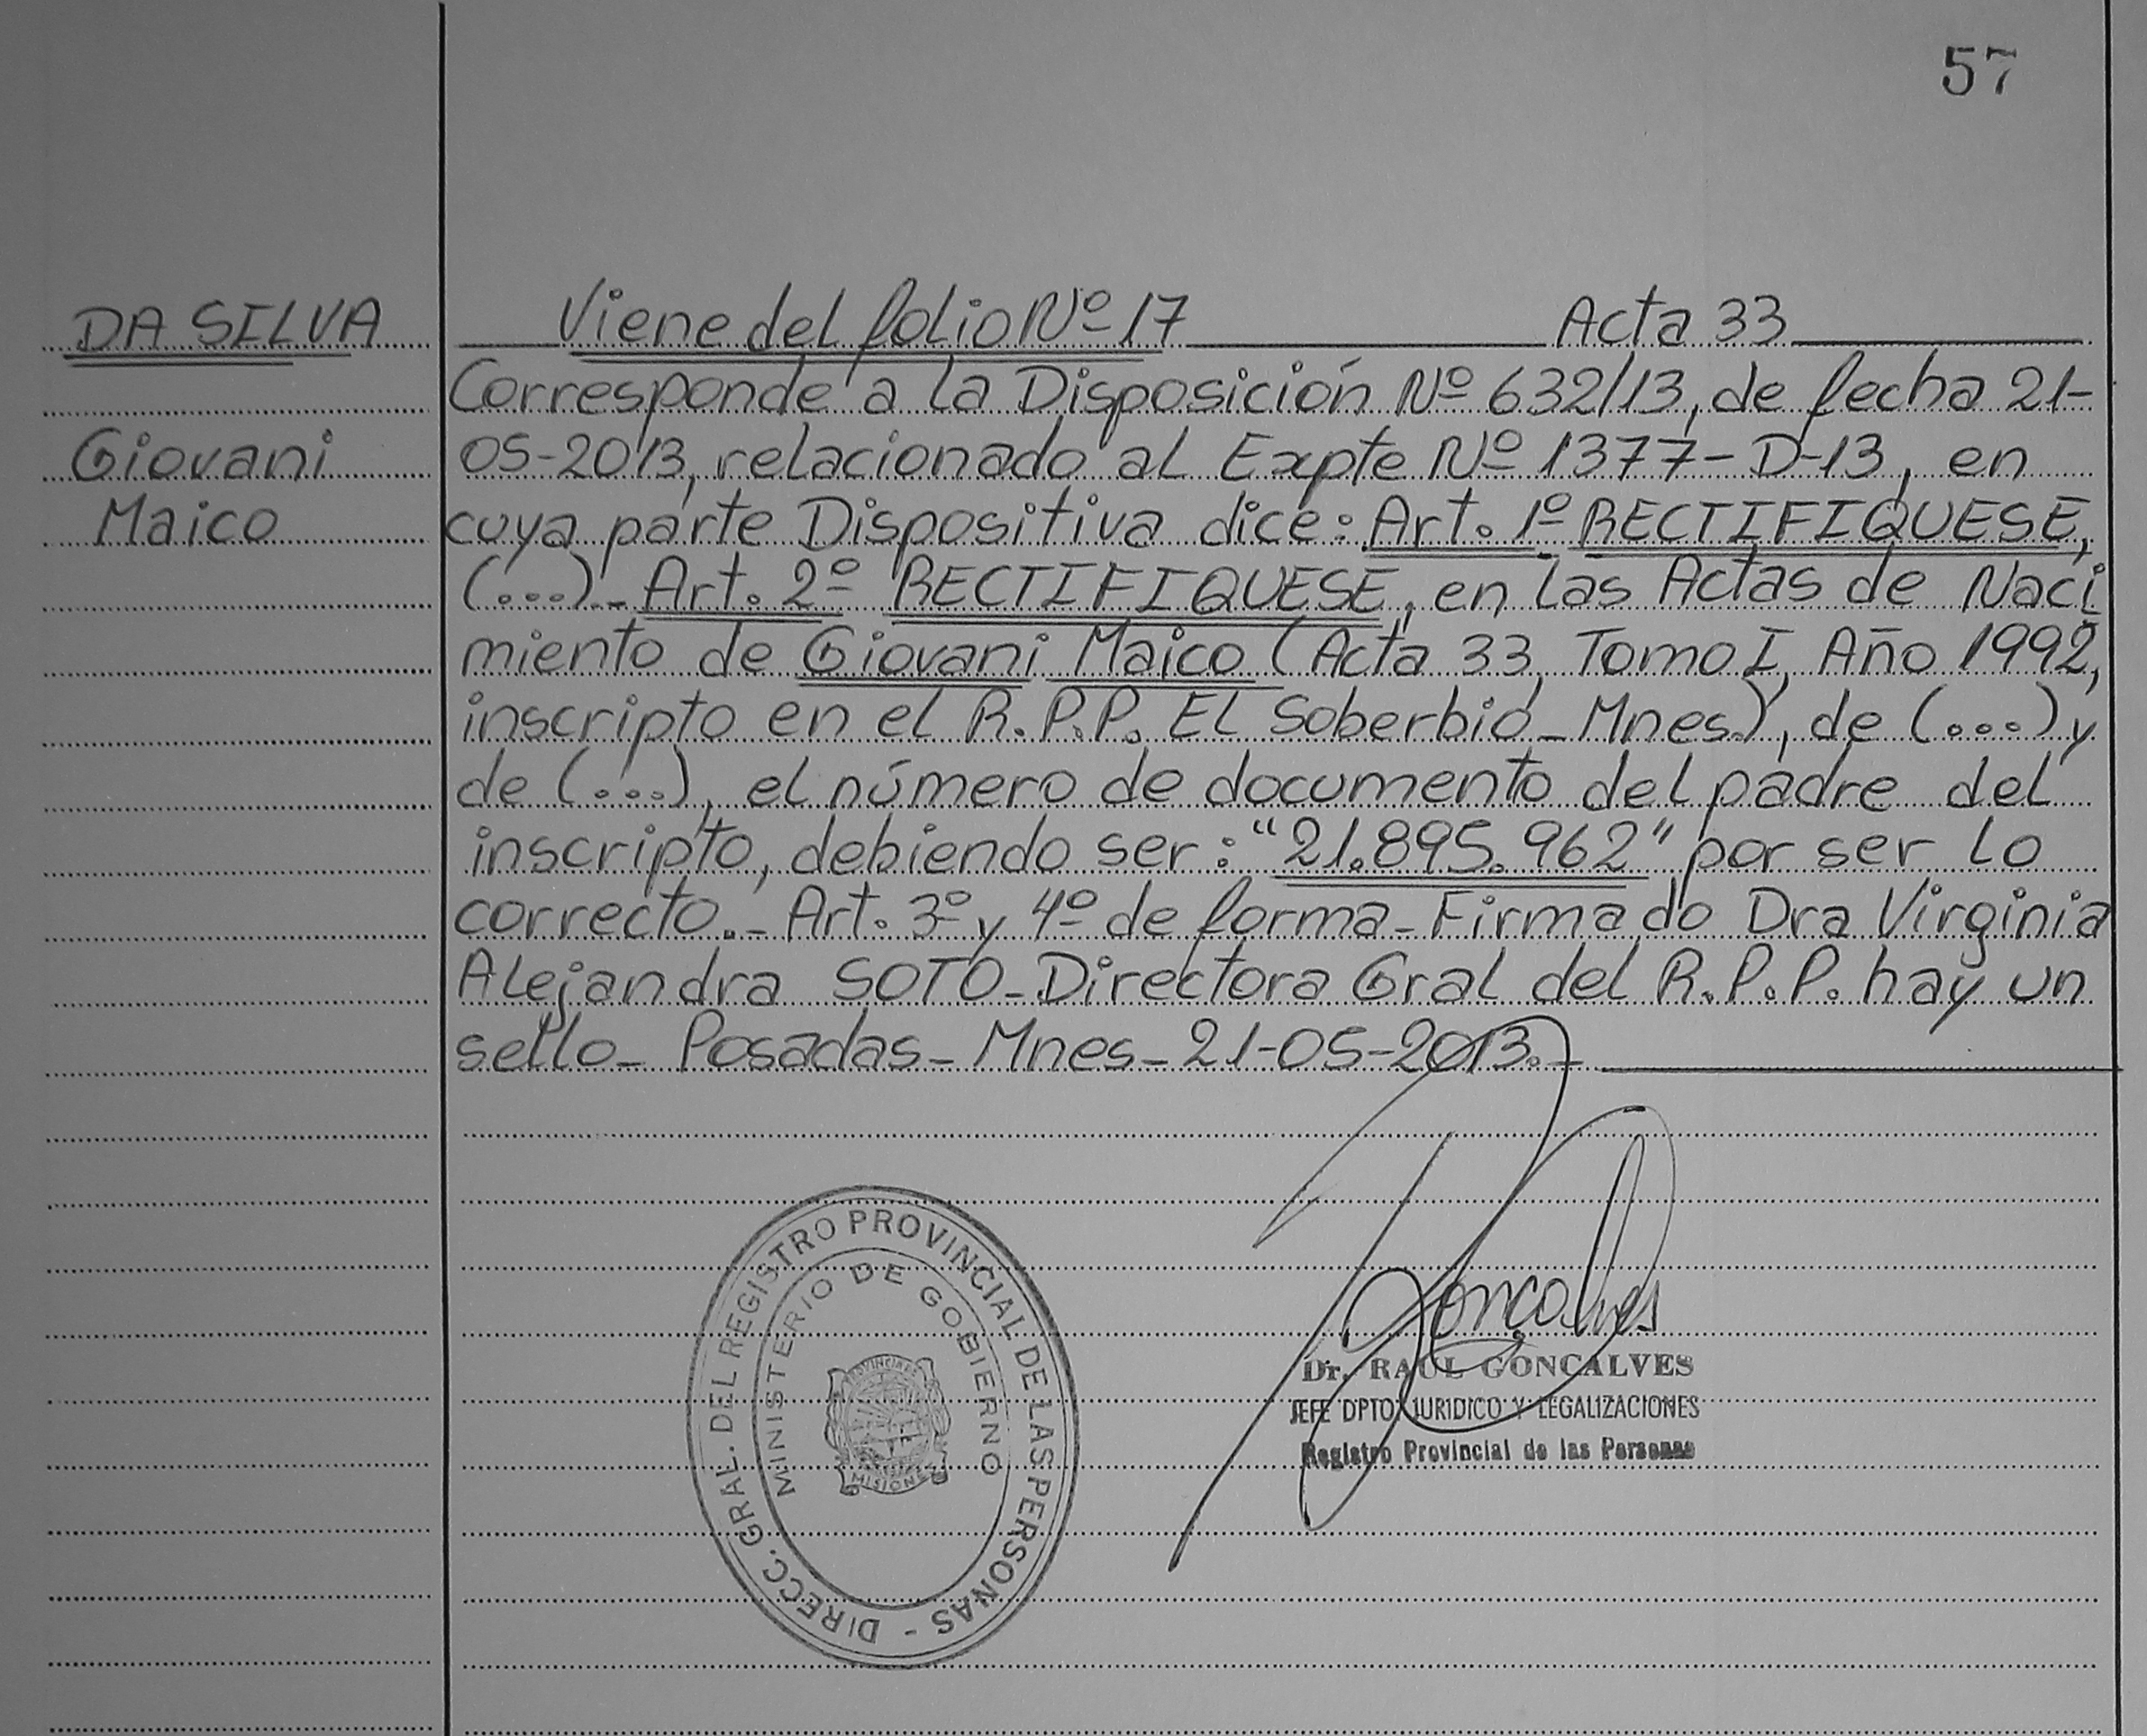 57
DA SILVA
Giovani
Maico
Viene del folio Nº 17 Acta 33
Corresponde a la Disposición Nº 632/13, de fecha 21-
05-2013, relacionado al Expte Nº 1377-D-13, en
cuya parte Dispositiva dice: Art. 1º RECTIFIQUESE,
(...)._ Art. 2º RECTIFIQUESE, en las Actas de Naci
miento de Giovani Maico (Acta 33, Tomo I, Año 1992,
inscripto en el R.P.P. El Soberbio_Mnes.), de (...) y
de (...), el número de documento del padre del
inscripto, debiendo ser: "21.895.962" por ser lo
correcto._ Art. 3º y 4º de forma_Firmado Dra Virginia
Alejandra SOTO_Directora Gral del R.P.P. hay un
sello_ Posadas_Mnes_21-05-2013._
DIRECC. GRAL. DEL REGISTRO PROVINCIAL DE LAS PERSONAS -
MINISTERIO DE GOBIERNO
MISIONES
Goncalves
Dr. RAUL GONCALVES
JEFE DPTO. JURIDICO Y LEGALIZACIONES
Registro Provincial de las Personas